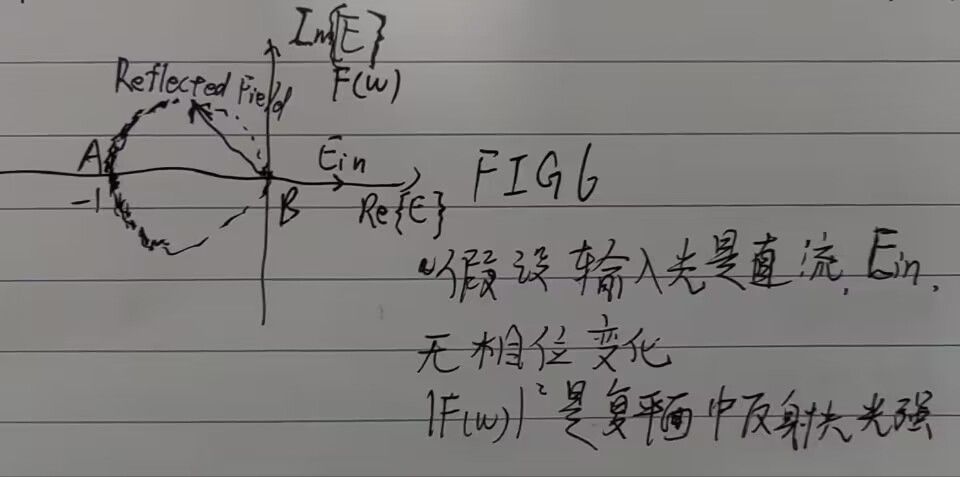 Im{E}
F(w)
Reflected Field
A
Ein
-1
B
Re{E}
FIG6
假设输入光是直流, Ein,
无相位变化
|F(w)|² 是复平面中反射光强